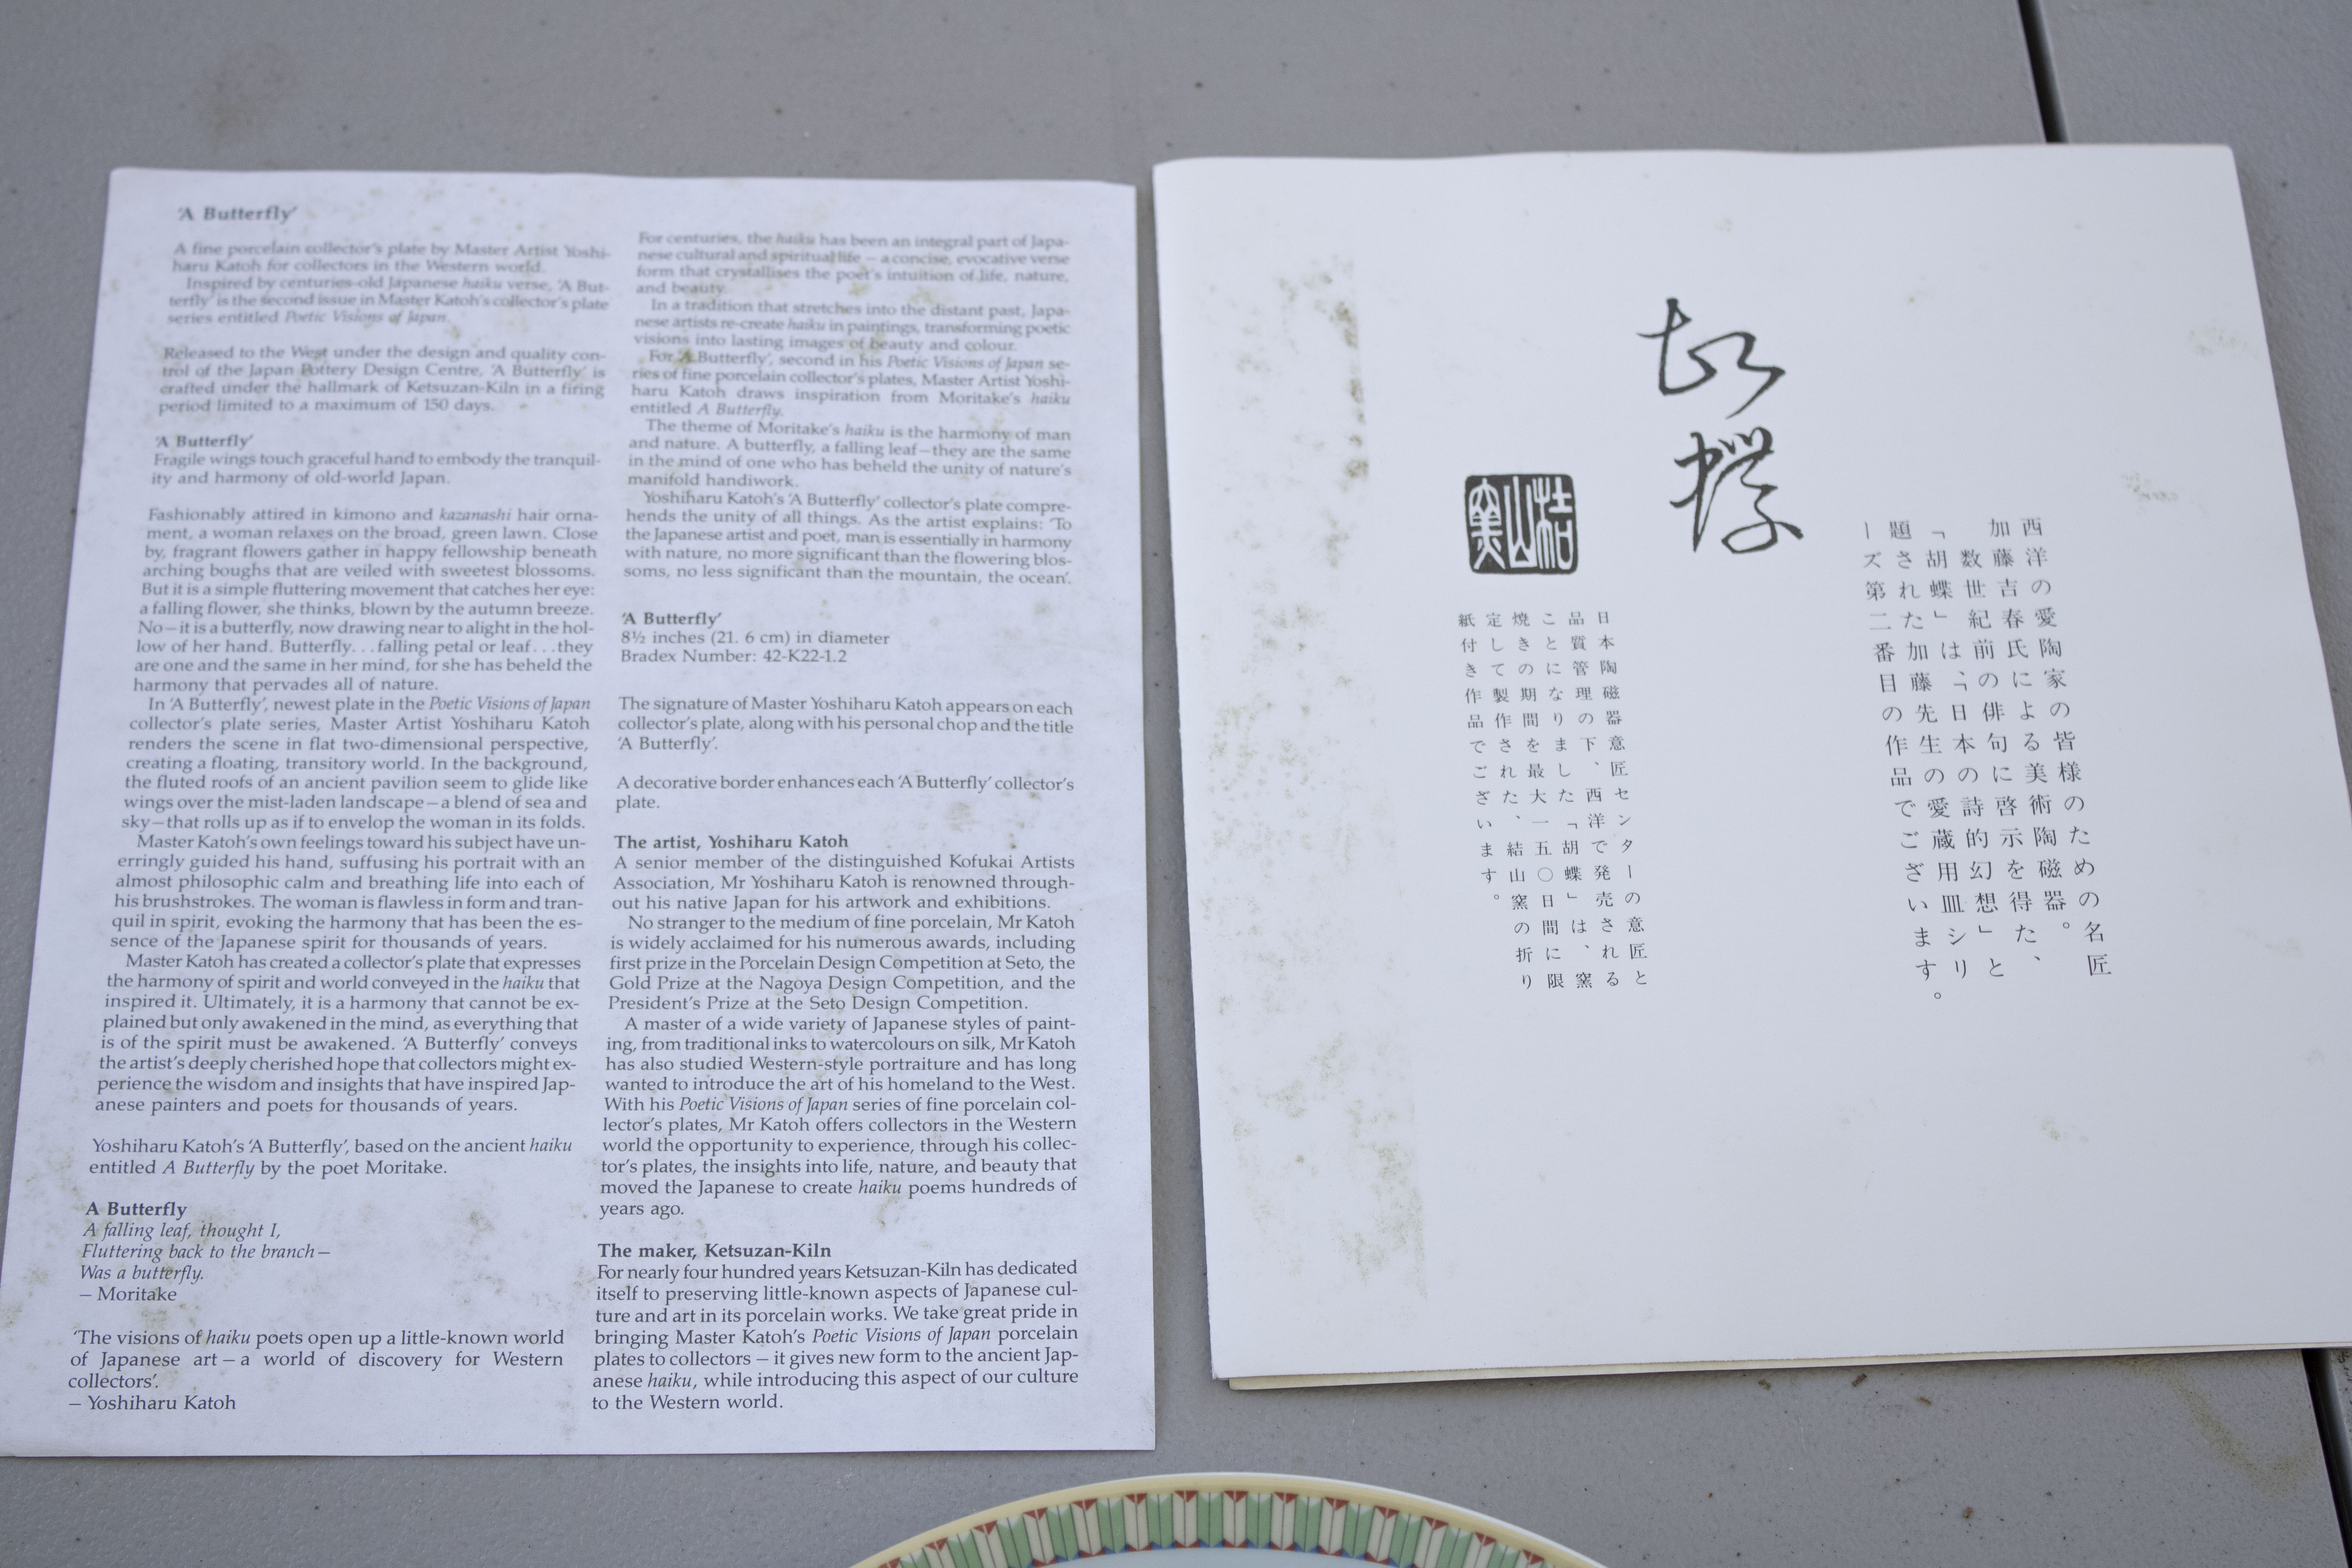 'A Butterfly'
A fine porcelain collector's plate by Master Artist Yoshi-
haru Katoh for collectors in the Western world.
Inspired by centuries-old Japanese haiku verse, 'A But-
terfly' is the second issue in Master Katoh's collector's plate
series entitled Poetic Visions of Japan.
Released to the West under the design and quality con-
trol of the Japan Pottery Design Centre, 'A Butterfly' is
crafted under the hallmark of Ketsuzan-Kiln in a firing
period limited to a maximum of 150 days.
'A Butterfly'
Fragile wings touch graceful hand to embody the tranquil-
ity and harmony of old-world Japan.
Fashionably attired in kimono and kazanashi hair orna-
ment, a woman relaxes on the broad, green lawn. Close
by, fragrant flowers gather in happy fellowship beneath
arching boughs that are veiled with sweetest blossoms.
But it is a simple fluttering movement that catches her eye:
a falling flower, she thinks, blown by the autumn breeze.
No—it is a butterfly, now drawing near to alight in the hol-
low of her hand. Butterfly. . .falling petal or leaf. . .they
are one and the same in her mind, for she has beheld the
harmony that pervades all of nature.
In 'A Butterfly', newest plate in the Poetic Visions of Japan
collector's plate series, Master Artist Yoshiharu Katoh
renders the scene in flat two-dimensional perspective,
creating a floating, transitory world. In the background,
the fluted roofs of an ancient pavilion seem to glide like
wings over the mist-laden landscape—a blend of sea and
sky—that rolls up as if to envelop the woman in its folds.
Master Katoh's own feelings toward his subject have un-
erringly guided his hand, suffusing his portrait with an
almost philosophic calm and breathing life into each of
his brushstrokes. The woman is flawless in form and tran-
quil in spirit, evoking the harmony that has been the es-
sence of the Japanese spirit for thousands of years.
Master Katoh has created a collector's plate that expresses
the harmony of spirit and world conveyed in the haiku that
inspired it. Ultimately, it is a harmony that cannot be ex-
plained but only awakened in the mind, as everything that
is of the spirit must be awakened. 'A Butterfly' conveys
the artist's deeply cherished hope that collectors might ex-
perience the wisdom and insights that have inspired Jap-
anese painters and poets for thousands of years.
Yoshiharu Katoh's 'A Butterfly', based on the ancient haiku
entitled A Butterfly by the poet Moritake.
A Butterfly
A falling leaf, thought I,
Fluttering back to the branch—
Was a butterfly.
— Moritake
'The visions of haiku poets open up a little-known world
of Japanese art — a world of discovery for Western
collectors'.
— Yoshiharu Katoh
For centuries, the haiku has been an integral part of Japa-
nese cultural and spiritual life — a concise, evocative verse
form that crystallises the poet's intuition of life, nature,
and beauty.
In a tradition that stretches into the distant past, Japa-
nese artists re-create haiku in paintings, transforming poetic
visions into lasting images of beauty and colour.
For 'A Butterfly', second in his Poetic Visions of Japan se-
ries of fine porcelain collector's plates, Master Artist Yoshi-
haru Katoh draws inspiration from Moritake's haiku
entitled A Butterfly.
The theme of Moritake's haiku is the harmony of man
and nature. A butterfly, a falling leaf—they are the same
in the mind of one who has beheld the unity of nature's
manifold handiwork.
Yoshiharu Katoh's 'A Butterfly' collector's plate compre-
hends the unity of all things. As the artist explains: 'To
the Japanese artist and poet, man is essentially in harmony
with nature, no more significant than the flowering blos-
soms, no less significant than the mountain, the ocean'.
'A Butterfly'
8½ inches (21. 6 cm) in diameter
Bradex Number: 42-K22-1.2
The signature of Master Yoshiharu Katoh appears on each
collector's plate, along with his personal chop and the title
'A Butterfly'.
A decorative border enhances each 'A Butterfly' collector's
plate.
The artist, Yoshiharu Katoh
A senior member of the distinguished Kofukai Artists
Association, Mr Yoshiharu Katoh is renowned through-
out his native Japan for his artwork and exhibitions.
No stranger to the medium of fine porcelain, Mr Katoh
is widely acclaimed for his numerous awards, including
first prize in the Porcelain Design Competition at Seto, the
Gold Prize at the Nagoya Design Competition, and the
President's Prize at the Seto Design Competition.
A master of a wide variety of Japanese styles of paint-
ing, from traditional inks to watercolours on silk, Mr Katoh
has also studied Western-style portraiture and has long
wanted to introduce the art of his homeland to the West.
With his Poetic Visions of Japan series of fine porcelain col-
lector's plates, Mr Katoh offers collectors in the Western
world the opportunity to experience, through his collec-
tor's plates, the insights into life, nature, and beauty that
moved the Japanese to create haiku poems hundreds of
years ago.
The maker, Ketsuzan-Kiln
For nearly four hundred years Ketsuzan-Kiln has dedicated
itself to preserving little-known aspects of Japanese cul-
ture and art in its porcelain works. We take great pride in
bringing Master Katoh's Poetic Visions of Japan porcelain
plates to collectors — it gives new form to the ancient Jap-
anese haiku, while introducing this aspect of our culture
to the Western world.
西洋の愛陶家の皆様のための名匠
加藤吉春氏による美術陶磁器。
数世紀前の俳句に啓示を得た、
「胡蝶」は、「日本の詩的幻想」と
題された加藤先生の愛蔵用皿シリ
ーズ第二番目の作品でございます。
胡蝶
桔山窯
日本陶磁器意匠センターの意匠と
品質管理の下、西洋で発売される
ことになりました「胡蝶」は、窯
焼きの期間を最大一五〇日間に限
定して製作された、結山窯の折り
紙付き作品でございます。